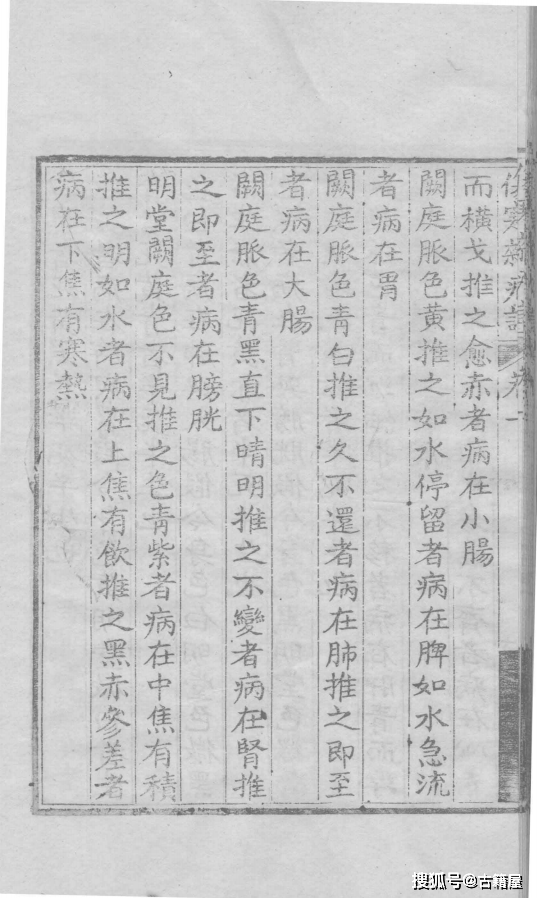 而橫戈推之愈赤者病在小腸
闕庭脈色黃推之如水停留者病在脾如水急流
者病在胃
闕庭脈色青白推之久不還者病在肺推之即至
者病在大腸
闕庭脈色青黑直下睛明推之不變者病在腎推
之即至者病在膀胱
明堂闕庭色不見推之色青紫者病在中焦有積
推之明如水者病在上焦有飲推之黑赤參差者
病在下焦有寒熱
搜狐号@古籍屋